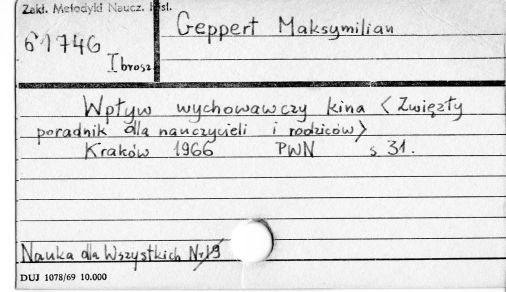 Zakł. Metodyki Naucz. Inst.
61746
I brosz
Geppert Maksymilian
Wpływ wychowawczy kina <Zwięzły
poradnik dla nauczycieli i rodziców>
Kraków 1966 PWN s 31.
Nauka dla Wszystkich Nr 19
DUJ 1078/69 10.000